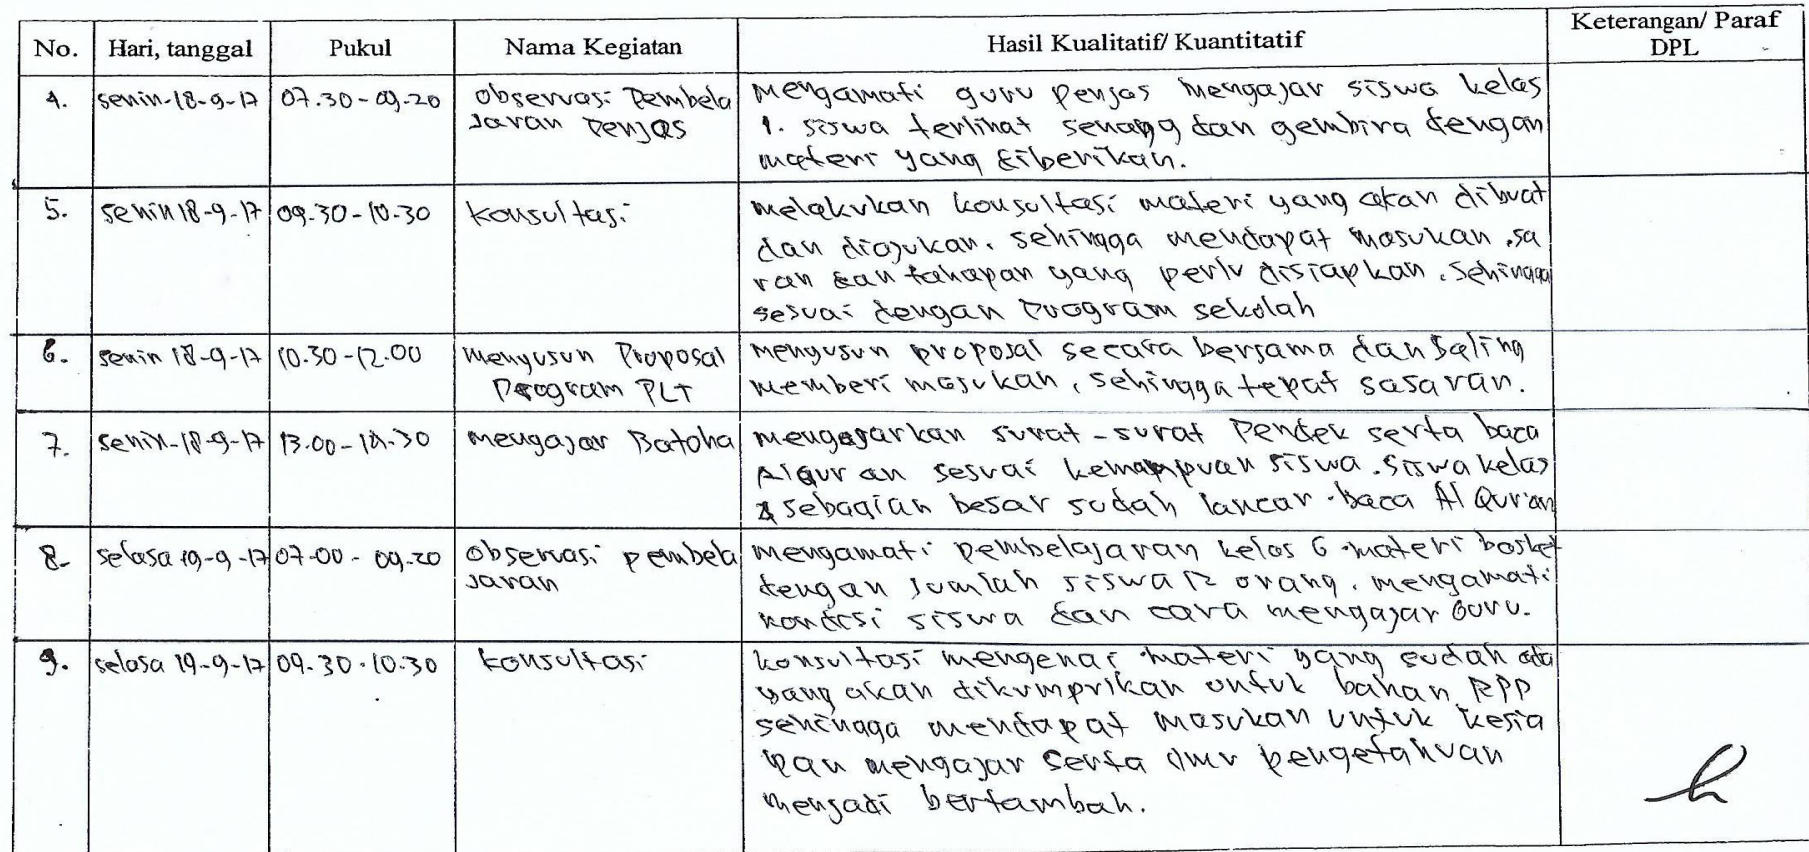 No. Hari, tanggal Pukul Nama Kegiatan Hasil Kualitatif/ Kuantitatif Keterangan/ Paraf DPL
4. senin-18-9-17 07.30-09.20 observasi Pembela mengamati guru penjas mengajar siswa kelas
jaran Penjas 1. siswa terlihat senang dan gembira dengan
materi yang diberikan.
5. senin 18-9-17 09.30-10.30 konsultasi melakukan konsultasi materi yang akan dibuat
dan diajukan. sehingga mendapat masukan, sa
ran dan tahapan yang perlu disiapkan. sehingga
sesuai dengan Program sekolah
6. senin 18-9-17 10.30-12.00 menyusun Proposal mengusun proposal secara bersama dan saling
Program PLT memberi masukan, sehingga tepat sasaran.
7. senin-18-9-17 13.00-14.30 mengajar Batoha mengajarkan surat-surat Pendek serta baca
Alqur an sesuai kemampuan siswa. siswa kelas
sebagian besar sudah lancar baca Al Qur'an
8. selasa 19-9-17 07-00 - 09.20 observasi pembela mengamati pembelajaran kelas 6 materi basket
jaran dengan jumlah siswa 12 orang. mengamati
kondisi siswa dan cara mengajar Guru.
9. selasa 19-9-17 09.30-10.30 konsultasi konsultasi mengenai materi yang sudah ada
yang akan untuk bahan RPP
sehingga mendapat masukan untuk kesia
pan mengajar serta ilmu pengetahuan
menjadi bertambah.